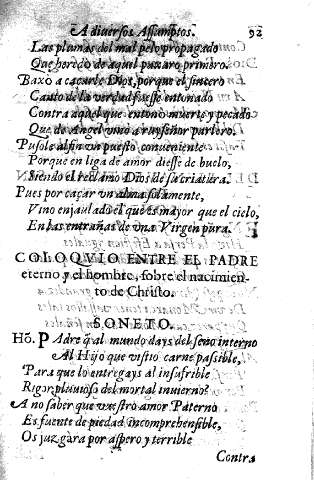 A diversos Assumptos. 92
Las plumas del mal pelo propagado
Que heredò de aquel paxaro primero.
Baxò a caçarle Dios, porque el sincero
Canto de la verdad fuesse entonado
Contra aquel que entonò muerte y pecado
Que de Angel vino a ruyseñor parlero.
Pusose alfin vn puesto conueniente
Porque en liga de amor diesse de buelo,
Siendo el reclamo Dios de su criatura.
Pues por caçar vn alma solamente,
Vino enjaulado el que es mayor que el cielo,
En las entrañas de vna Virgen pura.
COLOQVIO ENTRE EL PADRE
eterno y el hombre, sobre el nacimien-
to de Christo.
SONETO.
Hō. Padre q̄ al mundo days del seno interno
Al Hijo que vistio carne passible,
Para que lo entregays al insufrible
Rigor pluuioso del mortal inuierno?
A no saber que vuestro amor Paterno
Es fuente de piedad incomprehensible,
Os juzgara por aspero y terrible
Contra